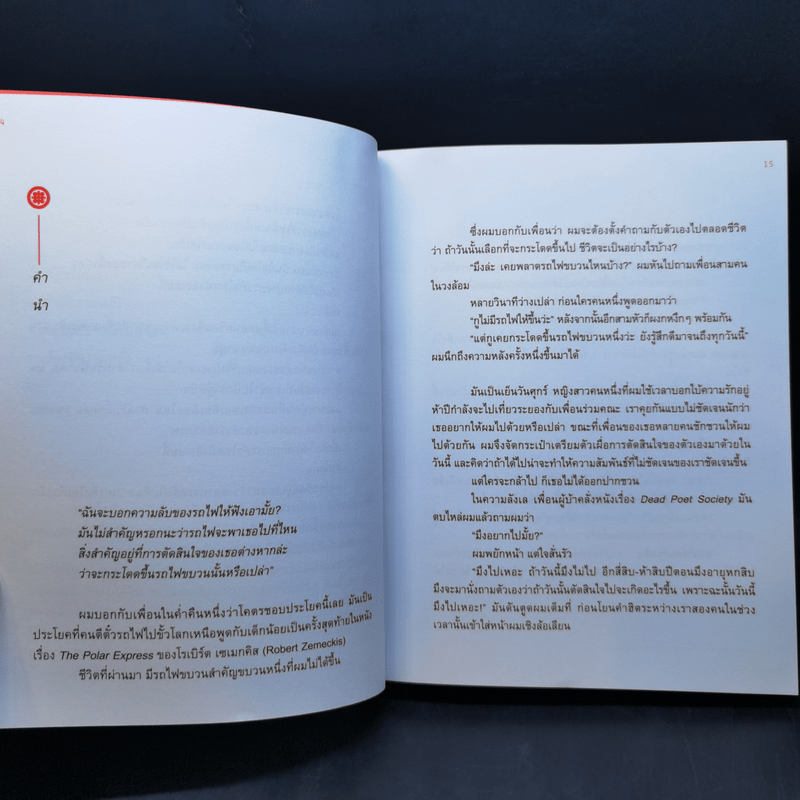 คำ
นำ
"ฉันจะบอกความลับของรถไฟให้ฟังเอามั้ย?
มันไม่สำคัญหรอกนะว่ารถไฟจะพาเธอไปที่ไหน
สิ่งสำคัญอยู่ที่การตัดสินใจของเธอต่างหากล่ะ
ว่าจะกระโดดขึ้นรถไฟขบวนนั้นหรือเปล่า"
ผมบอกกับเพื่อนในค่ำคืนหนึ่งว่าโคตรชอบประโยคนี้เลย มันเป็น
ประโยคที่คนตีตั๋วรถไฟไปขั้วโลกเหนือพูดกับเด็กน้อยเป็นครั้งสุดท้ายในหนัง
เรื่อง The Polar Express ของโรเบิร์ต เซเมกคิส (Robert Zemeckis)
ชีวิตที่ผ่านมา มีรถไฟขบวนสำคัญขบวนหนึ่งที่ผมไม่ได้ขึ้น
15
ซึ่งผมบอกกับเพื่อนว่า ผมจะต้องตั้งคำถามกับตัวเองไปตลอดชีวิต
ว่า ถ้าวันนั้นเลือกที่จะกระโดดขึ้นไป ชีวิตจะเป็นอย่างไรบ้าง?
"มึงล่ะ เคยพลาดรถไฟขบวนไหนบ้าง?" ผมหันไปถามเพื่อนสามคน
ในวงล้อม
หลายวินาทีว่างเปล่า ก่อนใครคนหนึ่งพูดออกมาว่า
"กูไม่มีรถไฟให้ขึ้นว่ะ" หลังจากนั้นอีกสามหัวก็ผงกหงึกๆ พร้อมกัน
"แต่กูเคยกระโดดขึ้นรถไฟขบวนหนึ่งว่ะ ยังรู้สึกดีมาจนถึงทุกวันนี้"
ผมนึกถึงความหลังครั้งหนึ่งขึ้นมาได้
มันเป็นเย็นวันศุกร์ หญิงสาวคนหนึ่งที่ผมใช้เวลาบอกใบ้ความรักอยู่
ห้าปีกำลังจะไปเที่ยวระยองกับเพื่อนร่วมคณะ เราคุยกันแบบไม่ชัดเจนนักว่า
เธออยากให้ผมไปด้วยหรือเปล่า ขณะที่เพื่อนของเธอหลายคนชักชวนให้ผม
ไปด้วยกัน ผมจึงจัดกระเป๋าเตรียมตัวเผื่อการตัดสินใจของตัวเองมาด้วยใน
วันนี้ และคิดว่าถ้าได้ไปน่าจะทำให้ความสัมพันธ์ที่ไม่ชัดเจนของเราชัดเจนขึ้น
แต่ใครจะกล้าไป ก็เธอไม่ได้ออกปากชวน
ในความลังเล เพื่อนผู้บ้าคลั่งหนังเรื่อง Dead Poet Society มัน
ตบไหล่ผมแล้วถามผมว่า
"มึงอยากไปมั้ย?"
ผมพยักหน้า แต่ใจสั่นรัว
"มึงไปเหอะ ถ้าวันนี้มึงไม่ไป อีกสี่สิบ-ห้าสิบปีตอนมึงอายุหกสิบ
มึงจะมานั่งถามตัวเองว่าถ้าวันนั้นตัดสินใจไปจะเกิดอะไรขึ้น เพราะฉะนั้นวันนี้
มึงไปเหอะ!" มันดันตูดผมเต็มที่ ก่อนโยนคำฮิตระหว่างเราสองคนในช่วง
เวลานั้นเข้าใส่หน้าผมเชิงล้อเลียน